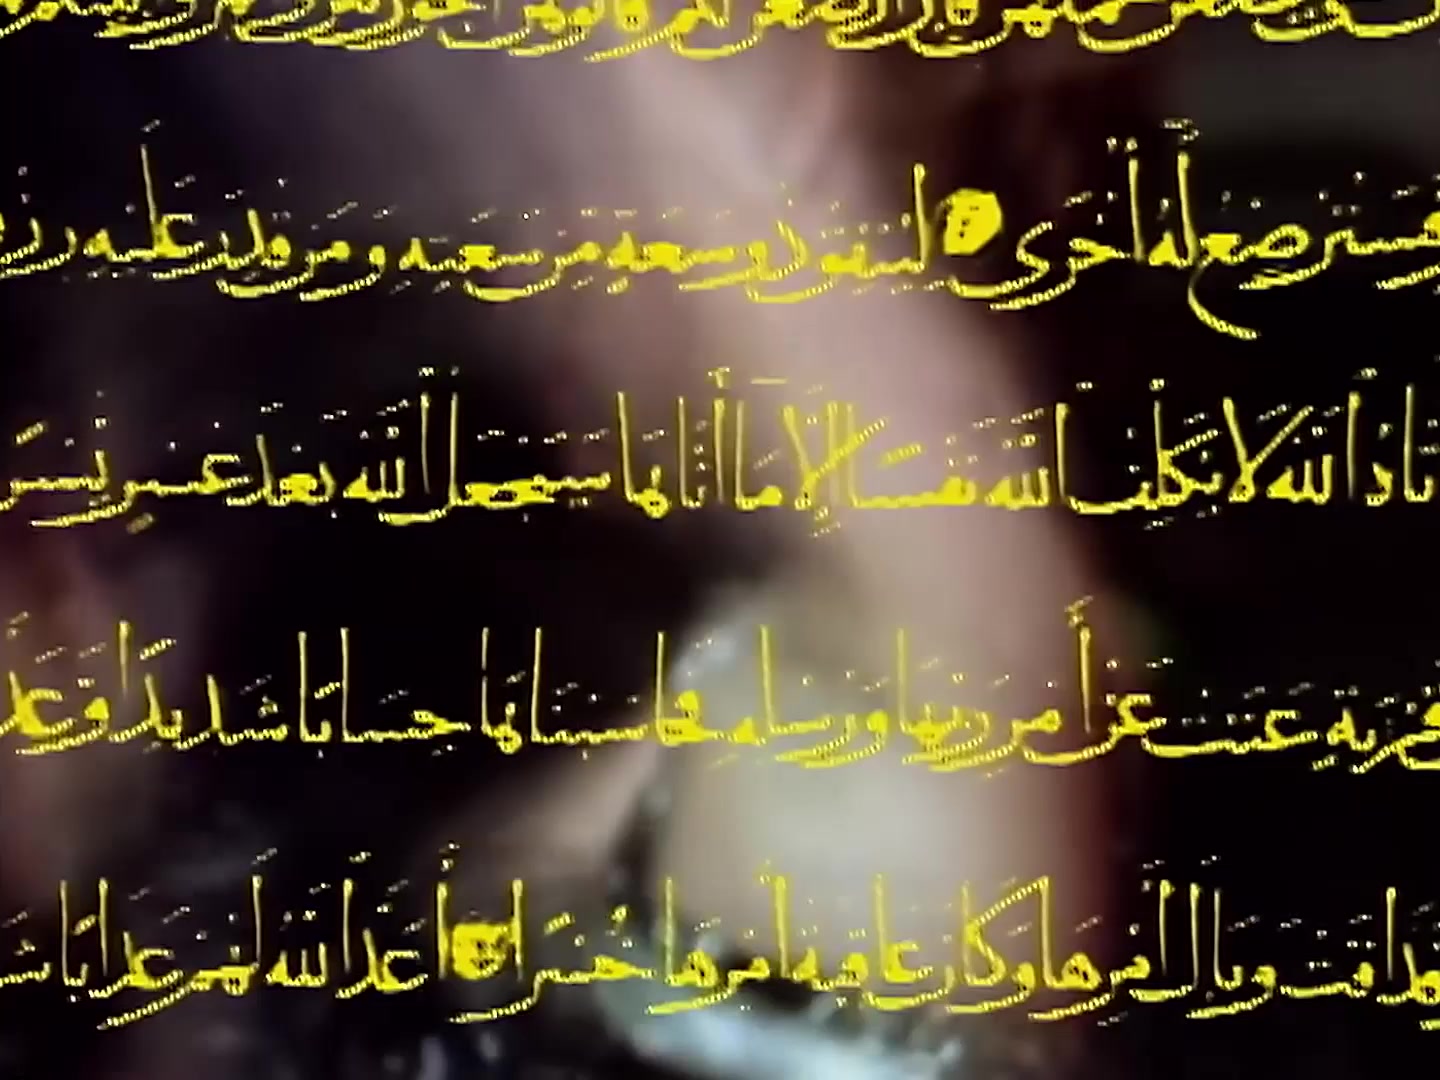 فسترضع له أخرى لينفق ذو سعة من سعته ومن قدر عليه رز
تاه الله لا يكلف الله نفسا إلا ما آتاها سيجعل الله بعد عسر يسر
قرية عتت عن أمر ربها ورسله فحاسبناها حسابا شديدا وعذ
فذاقت وبال أمرها وكان عاقبة أمرها خسرا أعد الله لهم عذابا شد